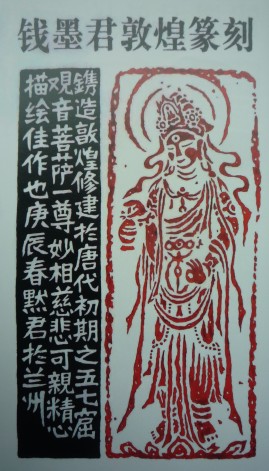 钱墨君敦煌篆刻
镌造敦煌修建於唐代初期之五七窟
观音菩萨一尊妙相慈悲可亲精心
描绘佳作也庚辰春默君於兰州